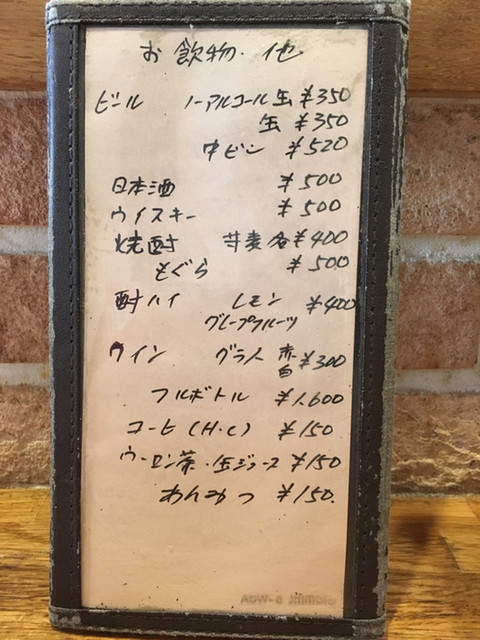 お飲物・他
ビール ノーアルコール缶 ¥350
缶 ¥350
中ビン ¥520
日本酒 ¥500
ウイスキー ¥500
焼酎 芋麦各¥400
もぐら ¥500
酎ハイ レモン ¥400
グレープフルーツ
ワイン グラス 赤白 ¥300
フルボトル ¥1,600
コーヒ(H・C) ¥150
ウーロン茶・缶ジュース ¥150
あんみつ ¥150.